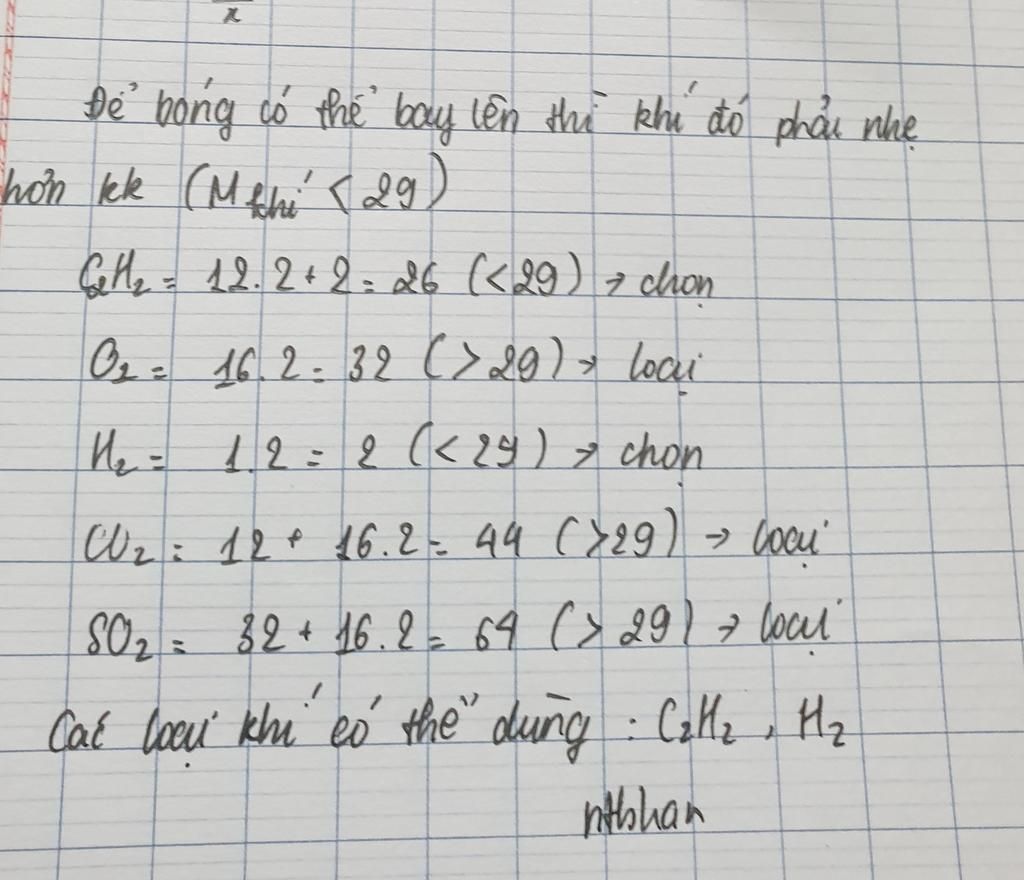 x
Để bóng có thể bay lên thì khí đó phải nhẹ
hơn kk (M khí < 29)
C₂H₂ = 12.2 + 2 = 26 (<29) → chọn
O₂ = 16.2 = 32 (>29) → loại
H₂ = 1.2 = 2 (<29) → chọn
CO₂ = 12 + 16.2 = 44 (>29) → loại
SO₂ = 32 + 16.2 = 64 (>29) → loại
Các loại khí có thể dùng : C₂H₂ , H₂